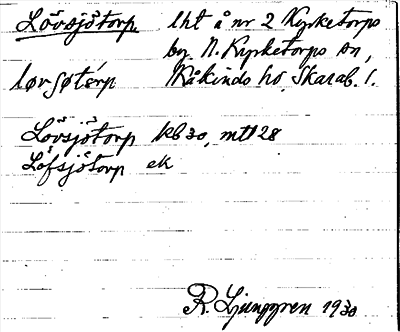 Lövsjötorp. lht å nr 2 Kyrketorps
by, N. Kyrketorps sn,
løvʃøtårp Kåkinds hd, Skarab. l.
Lövsjötorp kb 30, mtl 28
Löfsjötorp ek
R. Ljunggren 1930